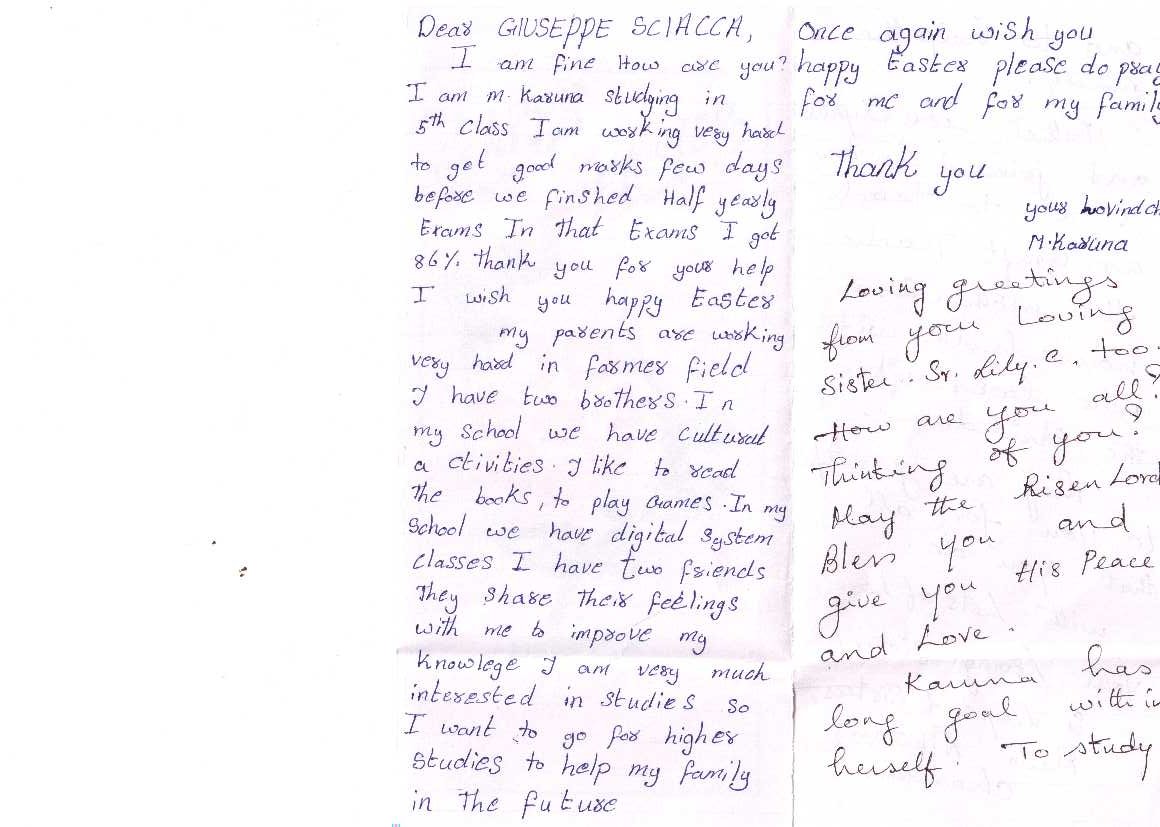 Dear GIUSEPPE SCIACCA,
I am fine How are you?
I am M. Karuna studying in
5th Class I am working very hard
to get good marks few days
before we finshed Half yearly
Exams In that Exams I got
86%. Thank you for your help
I wish you happy Easter
my parents are working
very hard in farmer field
I have two brothers. In
my School we have Cultural
activities. I like to read
the books, to play Games. In my
School we have digital System
Classes I have two friends
They Share Their feelings
with me to improve my
Knowlege I am very much
interested in studies so
I want to go for higher
Studies to help my family
in the future
Once again wish you
happy Easter please do pray
for me and for my family
Thank you
your
M. Karuna
Loving greetings
from your Loving
Sister. Sr. Lily. C. too.
How are you all?
Thinking of you?
May the Risen Lord
Bless you and
give you His Peace
and Love.
Karuna has
long goal with in
herself. To study